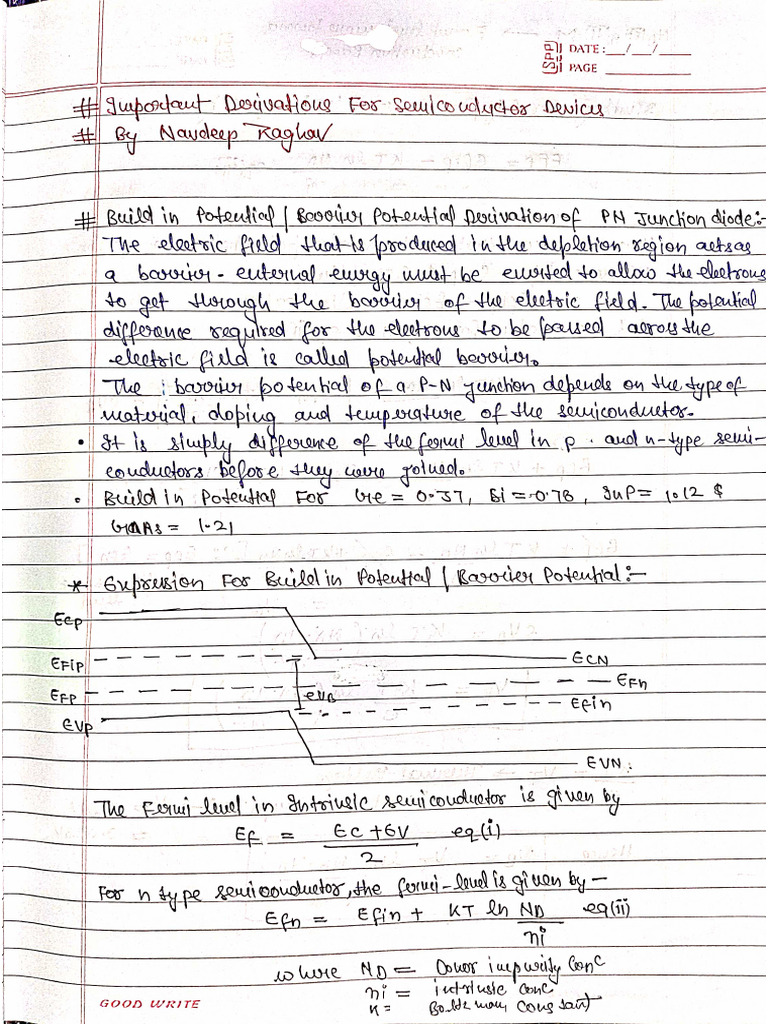 SPD
DATE: __/__/____
PAGE
# Important Derivations For Semiconductor Devices
# By Navdeep Raghav
# Build in Potential / Barrier Potential Derivation of PN Junction diode:-
The electric field that is produced in the depletion region acts as
a barrier - external energy must be exerted to allow the electrons
to get through the barrier of the electric field. The potential
difference required for the electrons to be passed across the
electric field is called potential barrier.
The barrier potential of a P-N junction depends on the type of
material, doping and temperature of the semiconductor.
• It is simply difference of the fermi level in p. and n-type semi-
conductors before they were joined.
• Build in Potential For Ge = 0.37, Si = 0.78, InP = 1.12 &
GaAs = 1.21
* Expression For Build in Potential / Barrier Potential:-
ECP
EFiP ECN
EFP eVB EFn
EVP Efin
EVN
The Fermi level in Intrinsic semiconductor is given by
Ef = Ec + EV / 2 eq(i)
For n type semiconductor, the fermi-level is given by -
Efn = Efin + KT ln ND / ni eq(ii)
where ND = Donor impurity Conc
ni = intrinsic conc
K = Boltzman Constant
GOOD WRITE